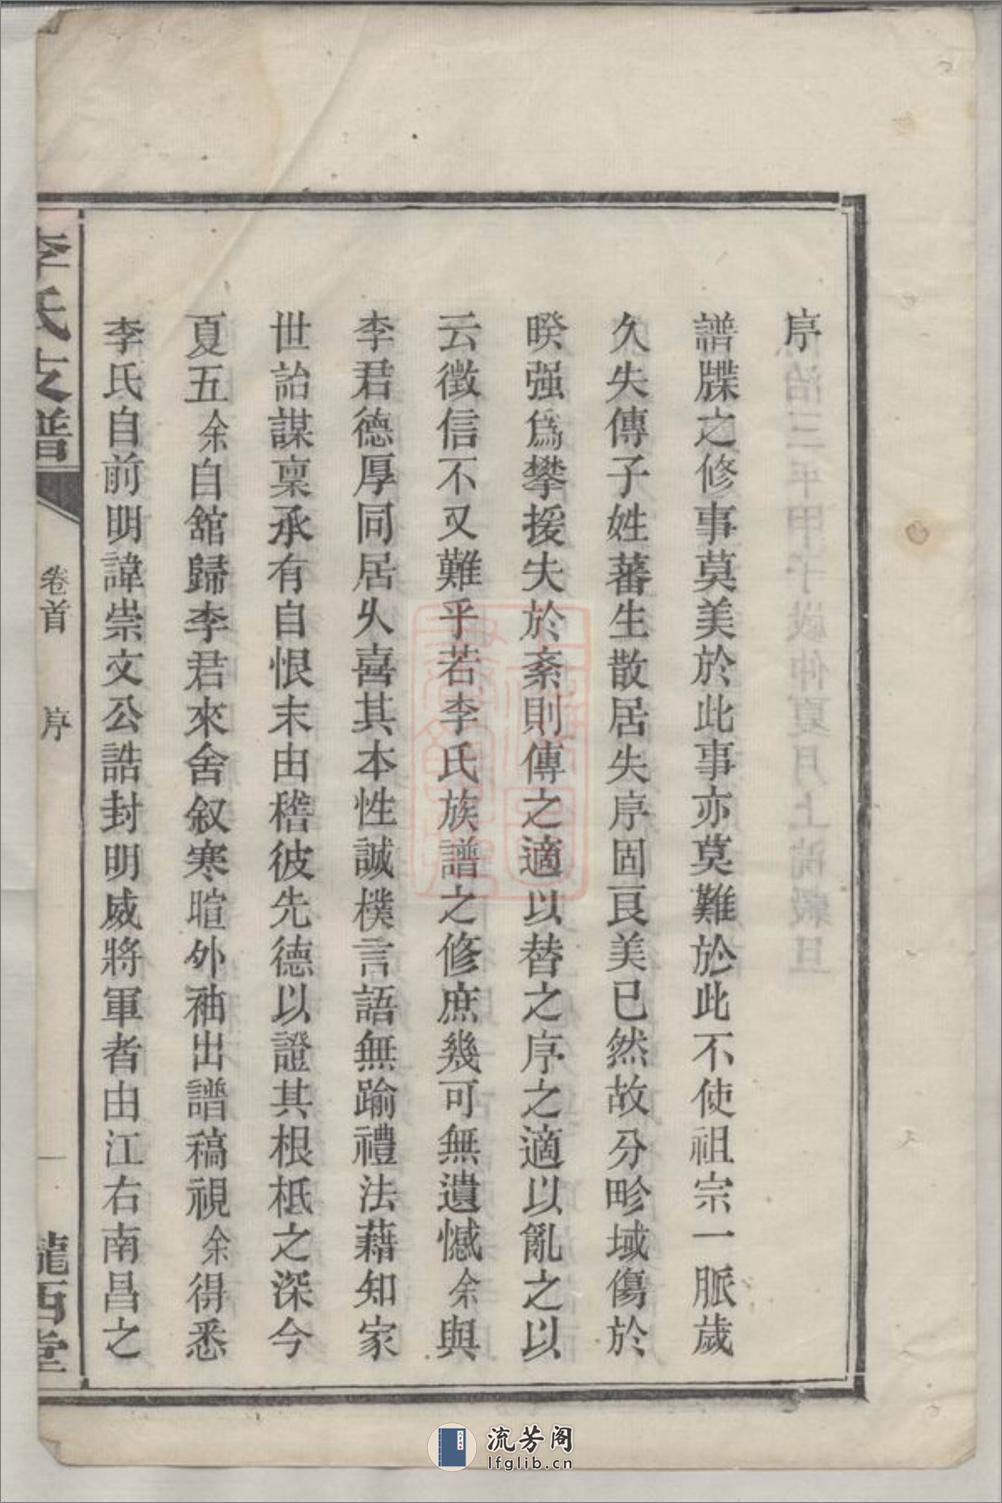 序
譜牒之修事莫美於此事亦莫難於此不使祖宗一脈歲
久失傳子姓蕃生散居失序固良美已然故分畛域傷於
暌强爲攀援失於紊則傳之適以替之序之適以亂之以
云徵信不又難乎若李氏族譜之修庶幾可無遺憾余與
李君德厚同居久喜其本性誠樸言語無踰禮法藉知家
世詒謀稟承有自恨末由稽彼先德以證其根柢之深今
夏五余自舘歸李君來舍叙寒暄外袖出譜稿視余得悉
李氏自前明諱崇文公誥封明威將軍者由江右南昌之
李氏支譜
卷首
序
一
隴西堂
流芳阁
lfglib.cn